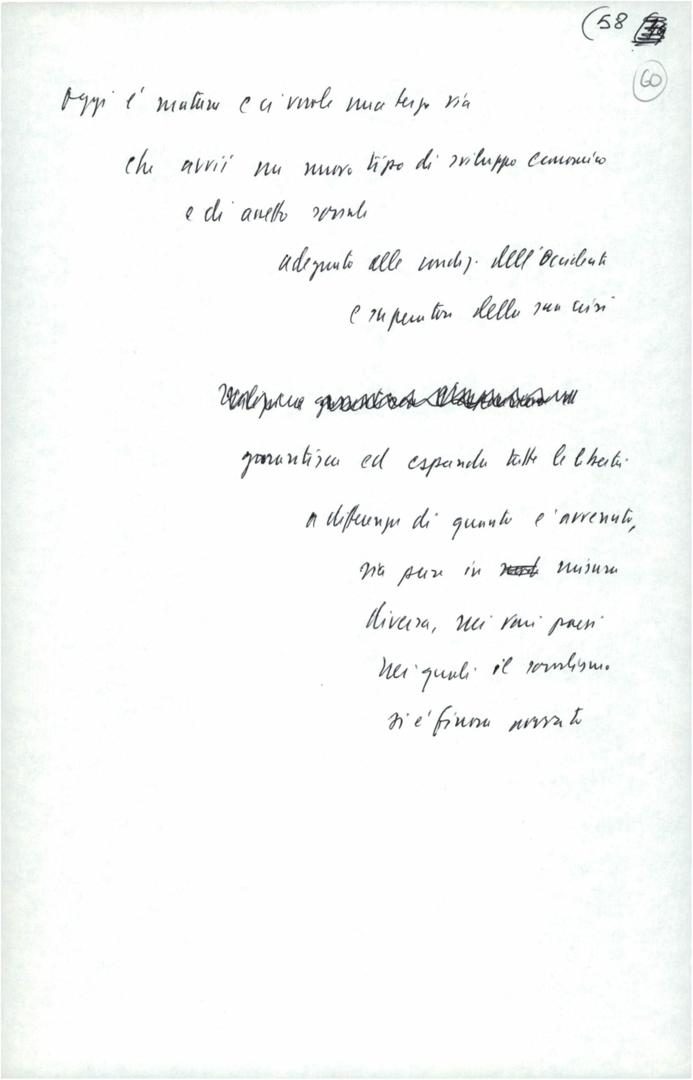 (58
60
Oggi è matura e ci vuole una terza via
che avvii un nuovo tipo di sviluppo economico
e di assetto sociale
adeguato alle condiz. dell'Occidente
e superatore della sua crisi
garantisca ed espanda tutte le libertà
a differenza di quanto è avvenuto,
sia pure in misura
diversa, nei vari paesi
nei quali il socialismo
si è finora